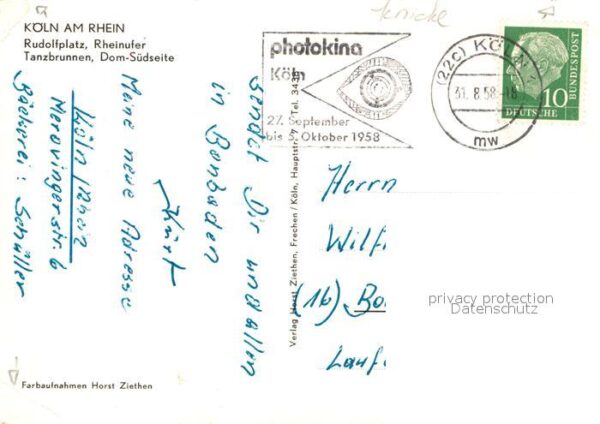 knicke
KÖLN AM RHEIN
Rudolfplatz, Rheinufer
Tanzbrunnen, Dom-Südseite
photokina
Köln
27. September
bis 5. Oktober 1958
(22c) KÖLN
31. 8. 58 - 18
mw
10
DEUTSCHE
BUNDESPOST
sendet Dir und allen
in Bonbaden
Kurt
Meine neue Adresse
Köln / Rhein
Merovingerstr. 6
Bäckerei: Schüller
Verlag Horst Ziethen, Frechen/Köln, Hauptstr. Tel.
Herrn
Wilf.
(16) Bo.
Lauf.
privacy protection
Datenschutz
Farbaufnahmen Horst Ziethen